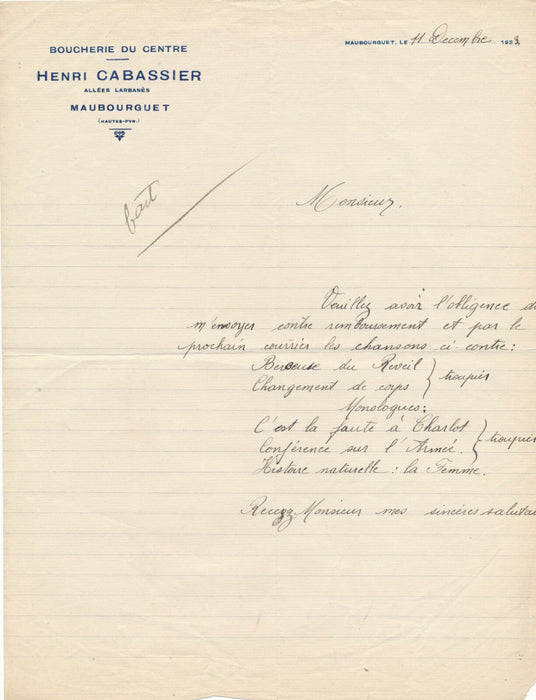 BOUCHERIE DU CENTRE
HENRI CABASSIER
ALLÉES LARBANÈS
MAUBOURGUET
(HAUTES-PYR.)
MAUBOURGUET, LE 11 Decembre 193
fait
Monsieur,
Veuillez avoir l'obligence de
m'envoyer contre remboursement et par le
prochain courrier les chansons ci-contre:
Berceuse du Reveil
Changement de corps } troupier
Monologues:
C'est la faute à Charlot
Conférence sur l'Armée. } troupier
Histoire naturelle : la Femme.
Recezz Monsieur mes sincères salutat